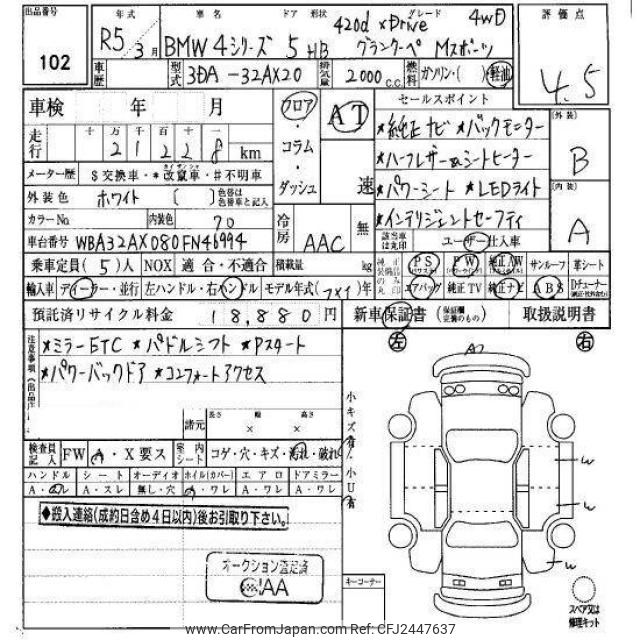 出品番号 年式 車名 ドア 形状 グレード 評価点
102
R5 3月 BMW 4シリーズ 5 HB
420d xDrive 4WD
グランクーペ Mスポーツ
4.5
車歴 型式 3DA-32AX20 排気量 2000 c.c. 燃料 ガソリン・( ) 軽油
車検 年 月
フロア・コラム・ダッシュ
AT 速
セールスポイント
*純正ナビ *バックモニター
*ハーフレザー&シートヒーター
*パワーシート *LEDライト
*インテリジェントセーフティ
外装 B
内装 A
走行 十 万 千 百 十 一
2 1 2 2 8 km
メーター歴 $交換車・*改竄車・#不明車
外装色 ホワイト ( ) 色替は色替車と記入
カラーNo. 内装色 70
車台番号 WBA32AX080FN46994
冷房 AAC 無
該当車は丸印 ユーザー仕入車
乗車定員(5)人 NOX 適合・不適合 積載量 kg
PS PW 純正AW サンルーフ 革シート
輸入車 ディーラー・並行 左ハンドル・右ハンドル モデル年式( )年
エアバッグ 純正TV 純正ナビ ABS Dチューナー
預託済リサイクル料金 18,880 円
新車保証書 (保証記載欄完備のもの) 取扱説明書
左 右
注意事項
*ミラーETC *パドルシフト *Pスタート
*パワーバックドア *コンフォートアクセス
諸元 長さ 幅 高さ
× ×
小キズ有 小U有
検査員記入 FW A・X要ス 室内シート コゲ・穴・キズ・汚れ・破れ
ハンドル シート オーディオ ホイル(カバー) エアロ ドアミラー
A・スレ A・スレ 無し・穴 A・ワレ A・ワレ A・ワレ
◆搬入連絡(成約日含め4日以内)後お引取り下さい。
オークション選定済
AA
キーコーナー
W
W
W
スペア又は修理キット
www.CarFromJapan.com Ref: CFJ2447637